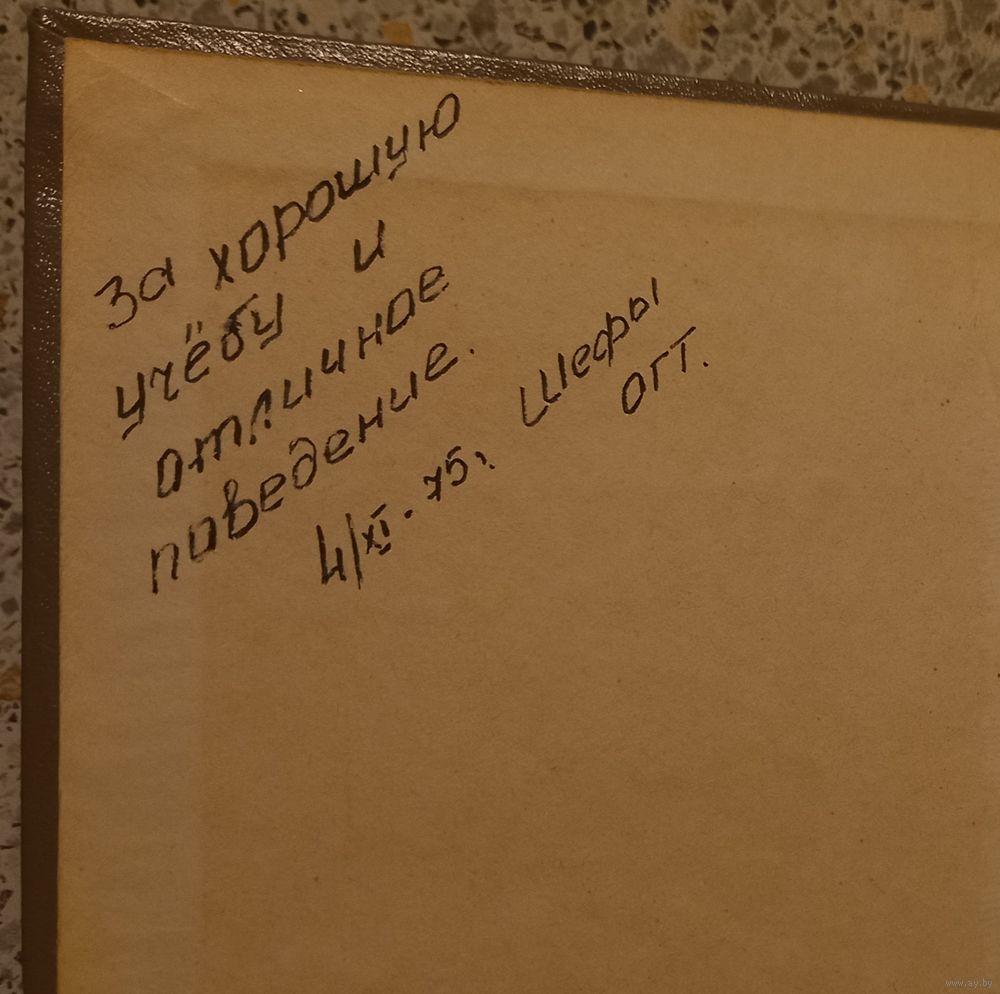 За хорошую
учёбу и
отличное
поведение.
4/XI. 75г.
Шефы
ОГТ.
www.ay.by